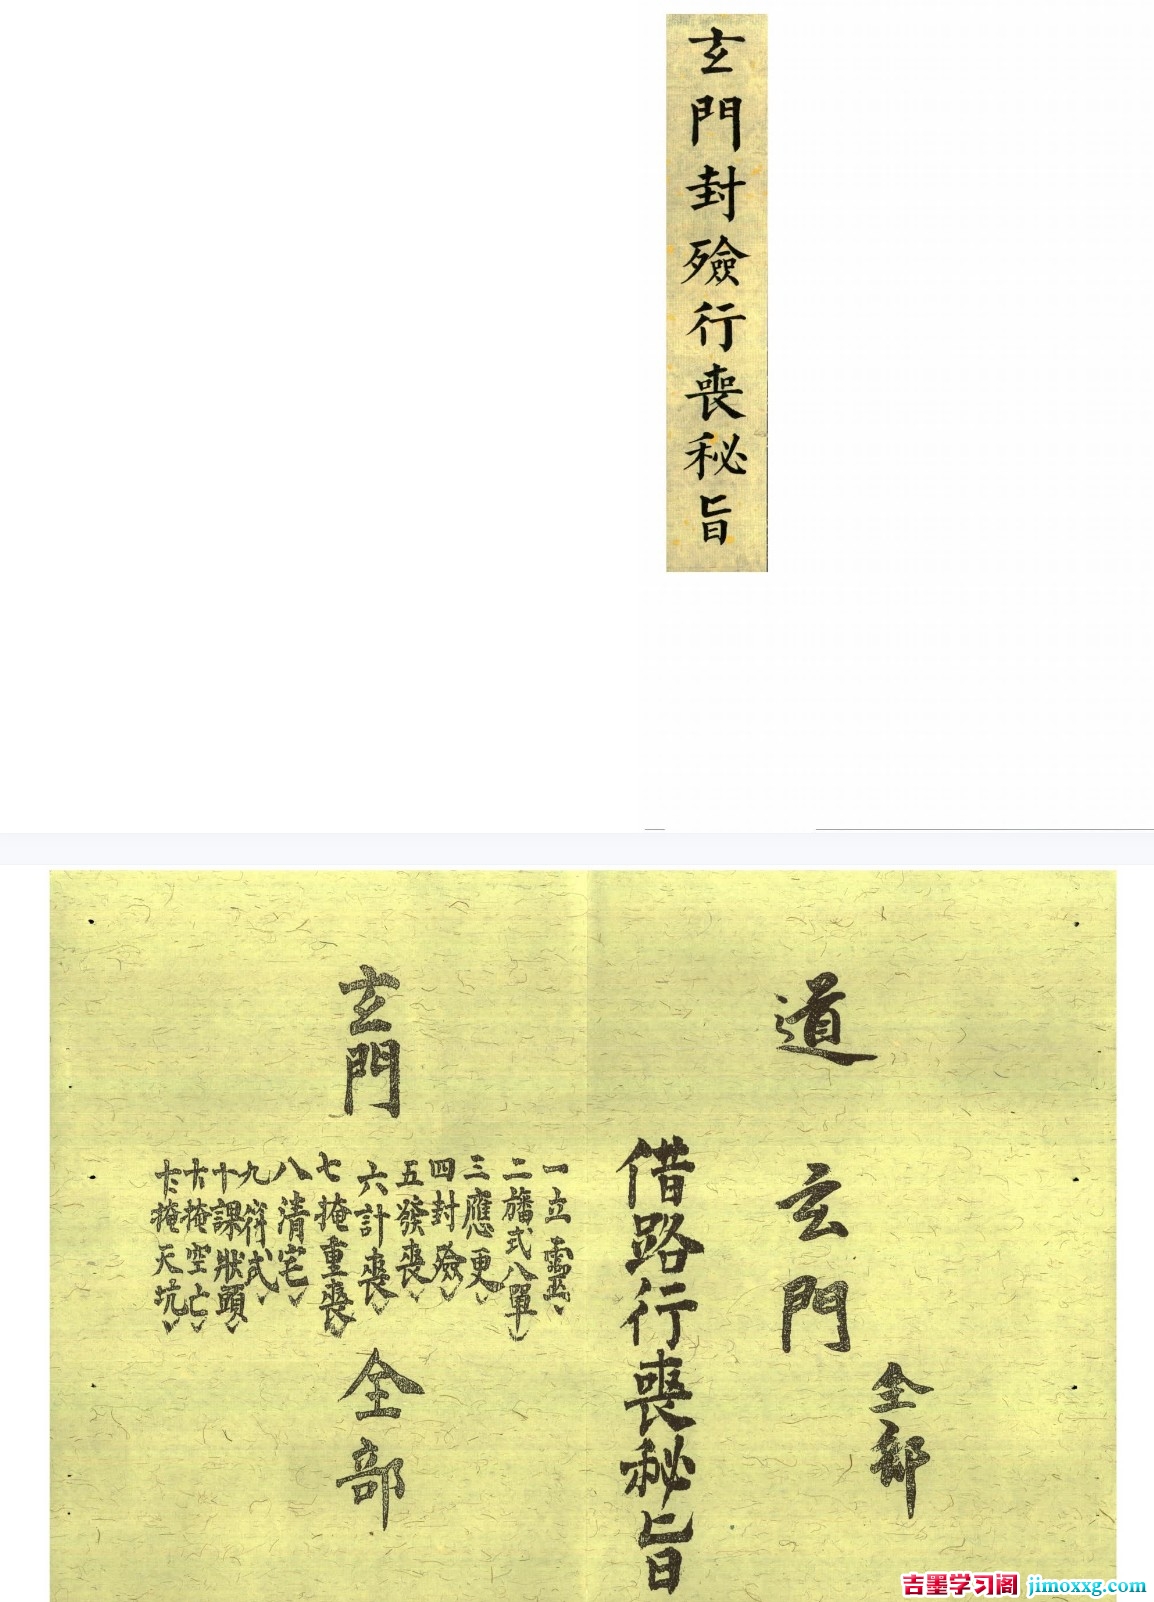 玄門封殮行喪秘旨
道
玄門
全部
借路行喪秘旨
玄門
一立靈
二旛式八單
三應更
四封殮
五發喪
六計喪
七掩重喪
八清宅
九符式
十課狀頭
十一掩空亡
十二掩天坑
全部
吉墨学习阁 jimoxxg.com